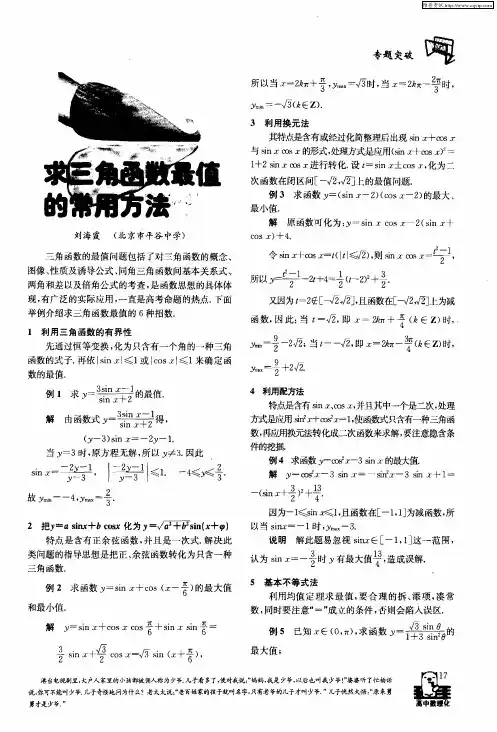 维普资讯 http://www.cqvip.com
专题突破
求三角函数最值
的常用方法
刘海霞 (北京市平谷中学)
三角函数的最值问题包括了对三角函数的概念、
图像、性质及诱导公式、同角三角函数间基本关系式、
两角和差以及倍角公式的考查,是函数思想的具体体
现,有广泛的实际应用,一直是高考命题的热点.下面
举例介绍求三角函数最值的6种招数.
1 利用三角函数的有界性
先通过恒等变换,化为只含有一个角的一种三角
函数的式子.再依|sin x|≤1或|cos x|≤1来确定函
数的最值.
例1 求y=(3sin x−1)/(sin x+2)的最值.
解 由函数式y=(3sin x−1)/(sin x+2)得,
(y−3)sin x=−2y−1.
当y=3时,原方程无解,所以y≠3.因此
sin x=(−2y−1)/(y−3), |(−2y−1)/(y−3)|≤1, −4≤y≤2/3.
故ymin=−4,ymax=2/3.
2 把y=a sinx+b cosx化为y=√(a²+b²)sin(x+φ)
特点是含有正余弦函数,并且是一次式.解决此
类问题的指导思想是把正、余弦函数转化为只含一种
三角函数.
例2 求函数y=sin x+cos (x−π/6)的最大值
和最小值.
解 y=sin x+cos x cos π/6+sin x sin π/6=
3/2 sin x+√3/2 cos x=√3 sin (x+π/6),
所以当x=2kπ+π/3,ymax=√3时,当x=2kπ−2π/3时,
ymin=−√3(k∈Z).
3 利用换元法
其特点是含有或经过化简整理后出现sin x+cos x
与sin x cos x的形式,处理方式是应用(sin x+cos x)²=
1+2 sin x cos x进行转化.设t=sin x±cos x,化为二
次函数在闭区间[−√2,√2]上的最值问题.
例3 求函数y=(sin x−2)(cos x−2)的最大、
最小值.
解 原函数可化为:y=sin x cos x−2(sin x+
cos x)+4.
令sin x+cos x=t(|t|≤√2),则sin x cos x=(t²−1)/2,
所以y=(t²−1)/2−2t+4=1/2(t−2)²+3/2.
又因为t=2∉[−√2,√2],且函数在[−√2,√2]上为减
函数,因此:当t=√2,即x=2kπ+π/4(k∈Z)时,
ymin=9/2−2√2;当t=−√2,即x=2kπ−3π/4(k∈Z)时,
ymax=9/2+2√2.
4 利用配方法
特点是含有sin x,cos x,并且其中一个是二次,处理
方式是应用sin²x+cos²x=1,使函数式只含有一种三角函
数,再应用换元法转化成二次函数来求解,要注意隐含条
件的挖掘.
例4 求函数y=cos²x−3 sin x的最大值.
解 y=cos²x−3 sin x=−sin²x−3 sin x+1=
−(sin x+3/2)²+13/4.
因为−1≤sin x≤1,且函数在[−1,1]为减函数,所
以当sinx=−1时,ymax=3.
说明 此题易忽视sinx∈[−1,1]这一范围,
认为sin x=−3/2时y有最大值13/4,造成误解.
5 基本不等式法
利用均值定理求最值,要合理的拆、添项,凑常
数,同时要注意“=”成立的条件,否则会陷入误区.
例5 已知x∈(0,π),求函数y=√3 sin θ/(1+3 sin²θ)的
最大值;
17
高中数理化